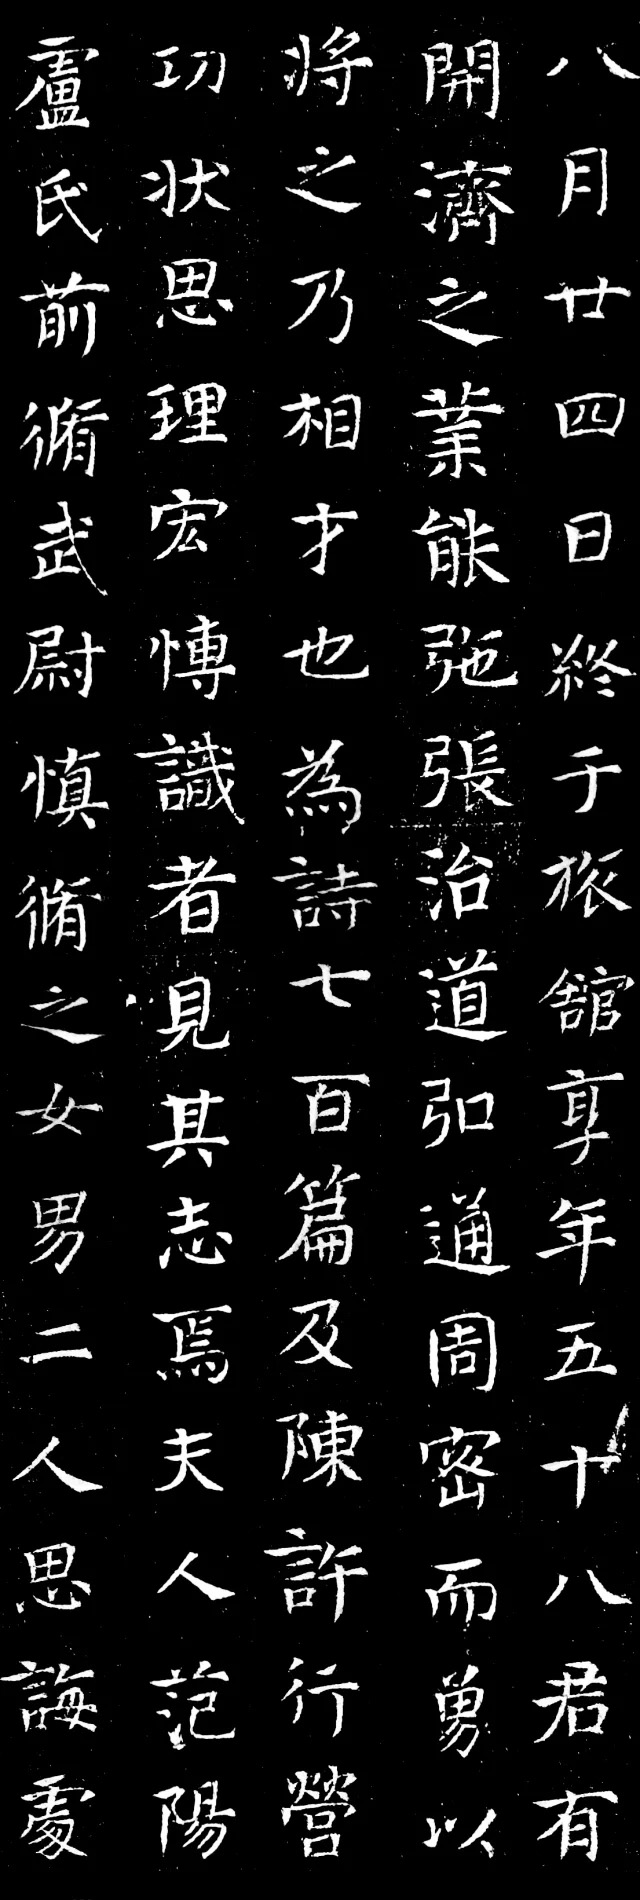 八月廿四日終于旅舘享年五十八君有
開濟之業能弛張治道弘通周密而勇以
將之乃相才也為詩七百篇及陳許行營
功狀思理宏愽識者見其志焉夫人范陽
盧氏前脩武尉慎脩之女男二人思誨處